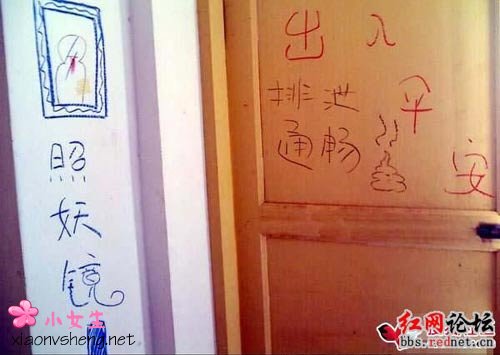 照妖镜
出入平安
排泄
通畅
小女生
xiaonvsheng.net
红网论坛
bbs.rednet.cn